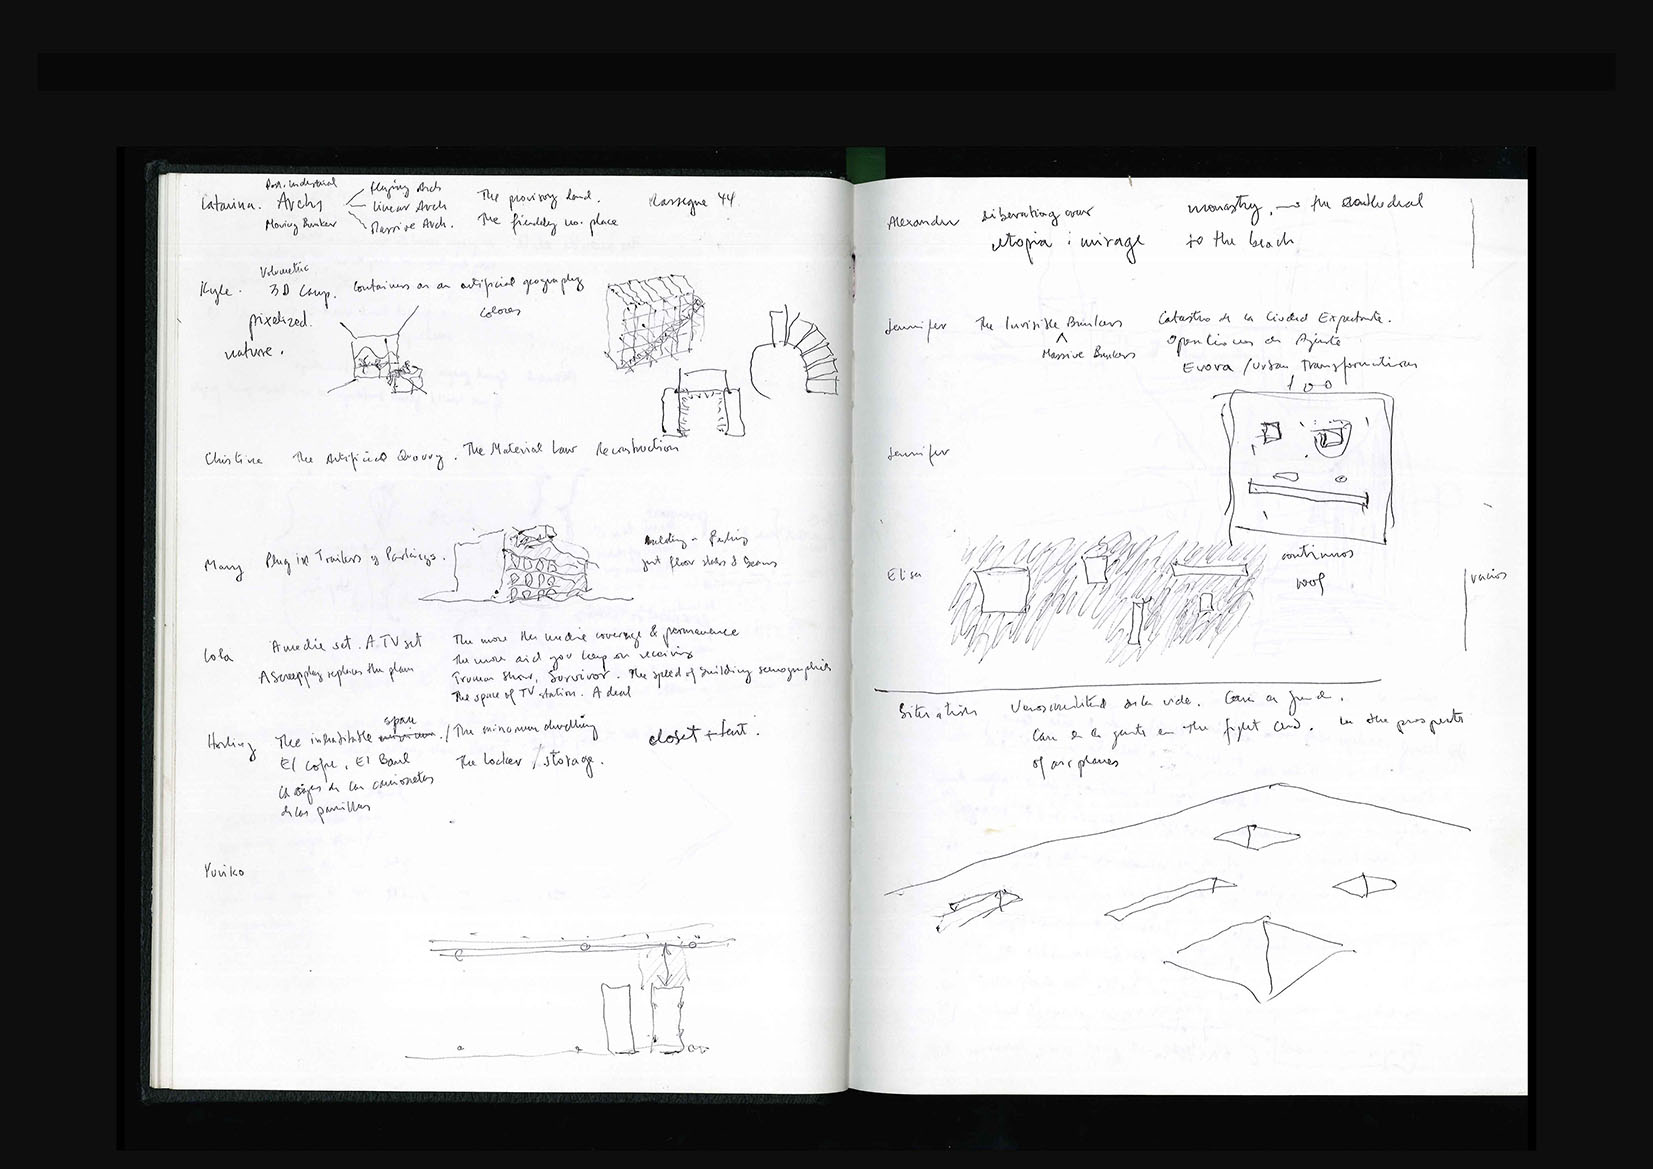 Post-industrial
Catarina. Archs
Moving Bunker
Flying Arch
linear Arch
Massive Arch.
The provisory land.
The friendly no. place
Rassegne 44
Volumetric
Kyle. 3D Comp. Containers as an artificial geography
colores
pixelized.
nature.
Christine The Artificial Quarry. The Material Law Reconstruction
Many Plug in Trailers y Parkings.
building - Parking
just floor slabs & Beams
Lola A media set. A TV set
A Screenplay replaces the plan
The more the media coverage & permanence
the more aid you keep on receiving
Truman Show, Survivor. The speed of building scenographies
The space of TV station. A deal
space
The inhabitable minimum. / The minimum dwelling
El cofre, El Baul The Locker / storage.
de las camionetas
de las parrillas
closet + tent.
Yuriko
Alexander Liberating over
utopia : mirage
monastry, → the cathedral
to the beach
Jennifer The Invisible Bunkers
Massive Bunkers
Catastro de la Ciudad Expectante.
Operaciones de Ajuste
Evora / Urban Transformations
100
Jennifer
Elisa
continuous
roof
vacios
Situation
in the prospects
of airplanes